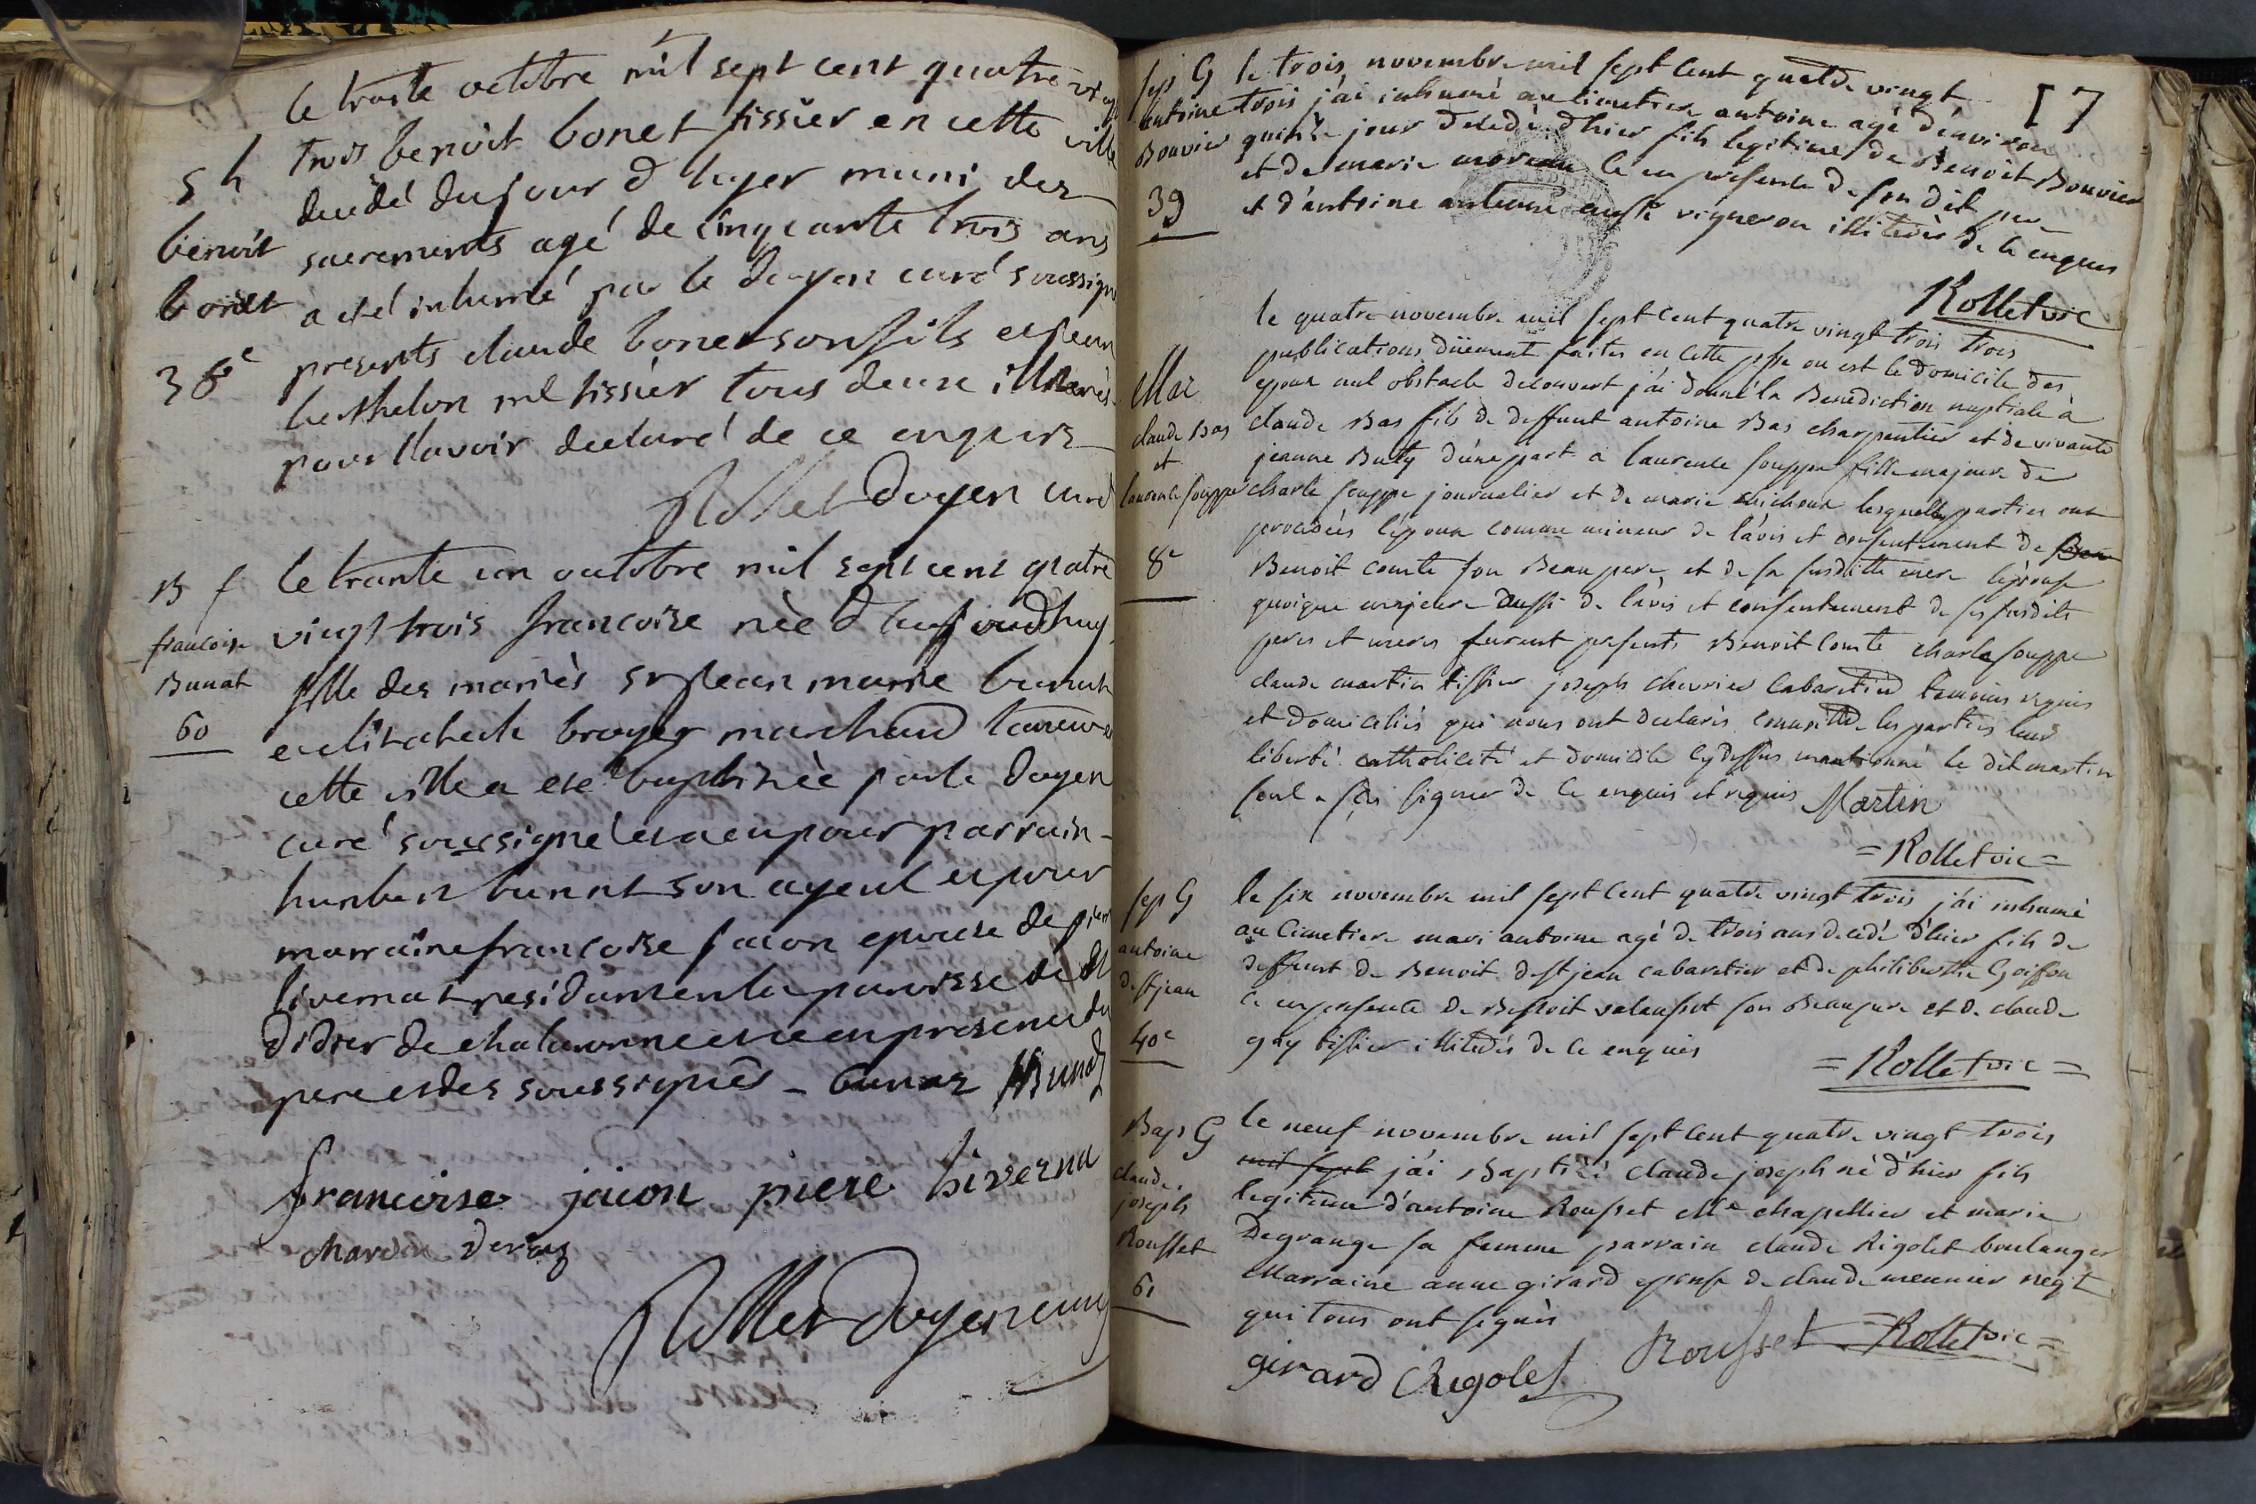 le trante octobre mil sept cent quatre vingt
trois benoit bonet tissier en cette ville
decédé du jour d hyer muni des
sacrements agé de cinquante trois ans
a eté inhumé par le doyen curé soussigné
presents claude bonet son fils et jean
berthelon me tissier tous deux illiterés
pour l'avoir declaré de ce enquis
Rollet doyen curé
s h
benoit
bonet
38e
le trante un octobre mil sept cent quatre
vingt trois francoise née d'aujourdhuy
fille des mariés sr jean marie bunat
et elizabeth broyer marchand
cette ville a eté baptizée par le doyen
curé soussigné et a eu pour parrain
bunat son ayeul et pour
marraine francoise jacon epouse de pierre
livernat residante en la paroisse de st
didier de chalaronne et ce en presence du
pere et des soussignés - bunat Bunat
B f
francoise
Bunat
60
francoise jacon piere liverna
Rollet doyen curé
17
le trois novembre mil sept cent quatre vingt
trois j'ai inhumé au cimetiere antoine agé d'environ
quinze jour decedé d'hier fils legitime de Benoit Bouvier
et de marie moreau le en presence de son dit pere
et d'antoine vigneron illiterés de ce enquis
Rollet vic
sep G
antoine
Bouvier
39
le quatre novembre mil sept cent quatre vingt trois trois
publications düement faites en cette psse ou est le domicile des
epoux nul obstacle decouvert j'ai donné la Benediction nuptiale à
claude Bas fils de deffunt antoine Bas charpentier et de vivante
jeanne Buty d'une part a laurence souppe fille majeure de
charle souppe journalier et de marie michoux lesquelles parties ont
procedées l'epoux comme mineur de l'avis et consentement de
Benoit comte son Beau pere et de sa susditte mere l'epouse
quoique majeure aussi de l'avis et consentement de ses susdits
peres et meres furent presents Benoit Comte charle souppe
claude martin tissier joseph chevrier cabaretier temoins requis
et domiciliés qui nous ont declarés connoitre les parties leur
liberté catholicité et domicile cy dessus mantionné le dit martin
seul a sçu signer de ce enquis et requis Martin
= Rollet vic =
Mar
claude Bas
et
laurence souppe
8e
le six novembre mil sept cent quatre vingt trois j'ai inhumé
au Cimetiere antoine agé de trois ans decedé d'hier fils de
deffunt de Benoit destjean cabaretier et de philiberthe Goiffon
ce en presence de Benoit son Beaupere et de claude
gay tissier illiterés de ce enquis
= Rollet vic =
sep G
antoine
destjean
40e
le neuf novembre mil sept cent quatre vingt trois
mil sept j'ai Baptisé claude joseph né d'hier fils
legitime d'antoine Rousset Me chapellier et marie
Degrange sa femme parrain claude Rigolet boulanger
Marraine anne girard epouse de claude meunier negt
qui tous ont signés
Bap G
claude
joseph
Rousset
61
girard Rigolet Rousset = Rollet vic =